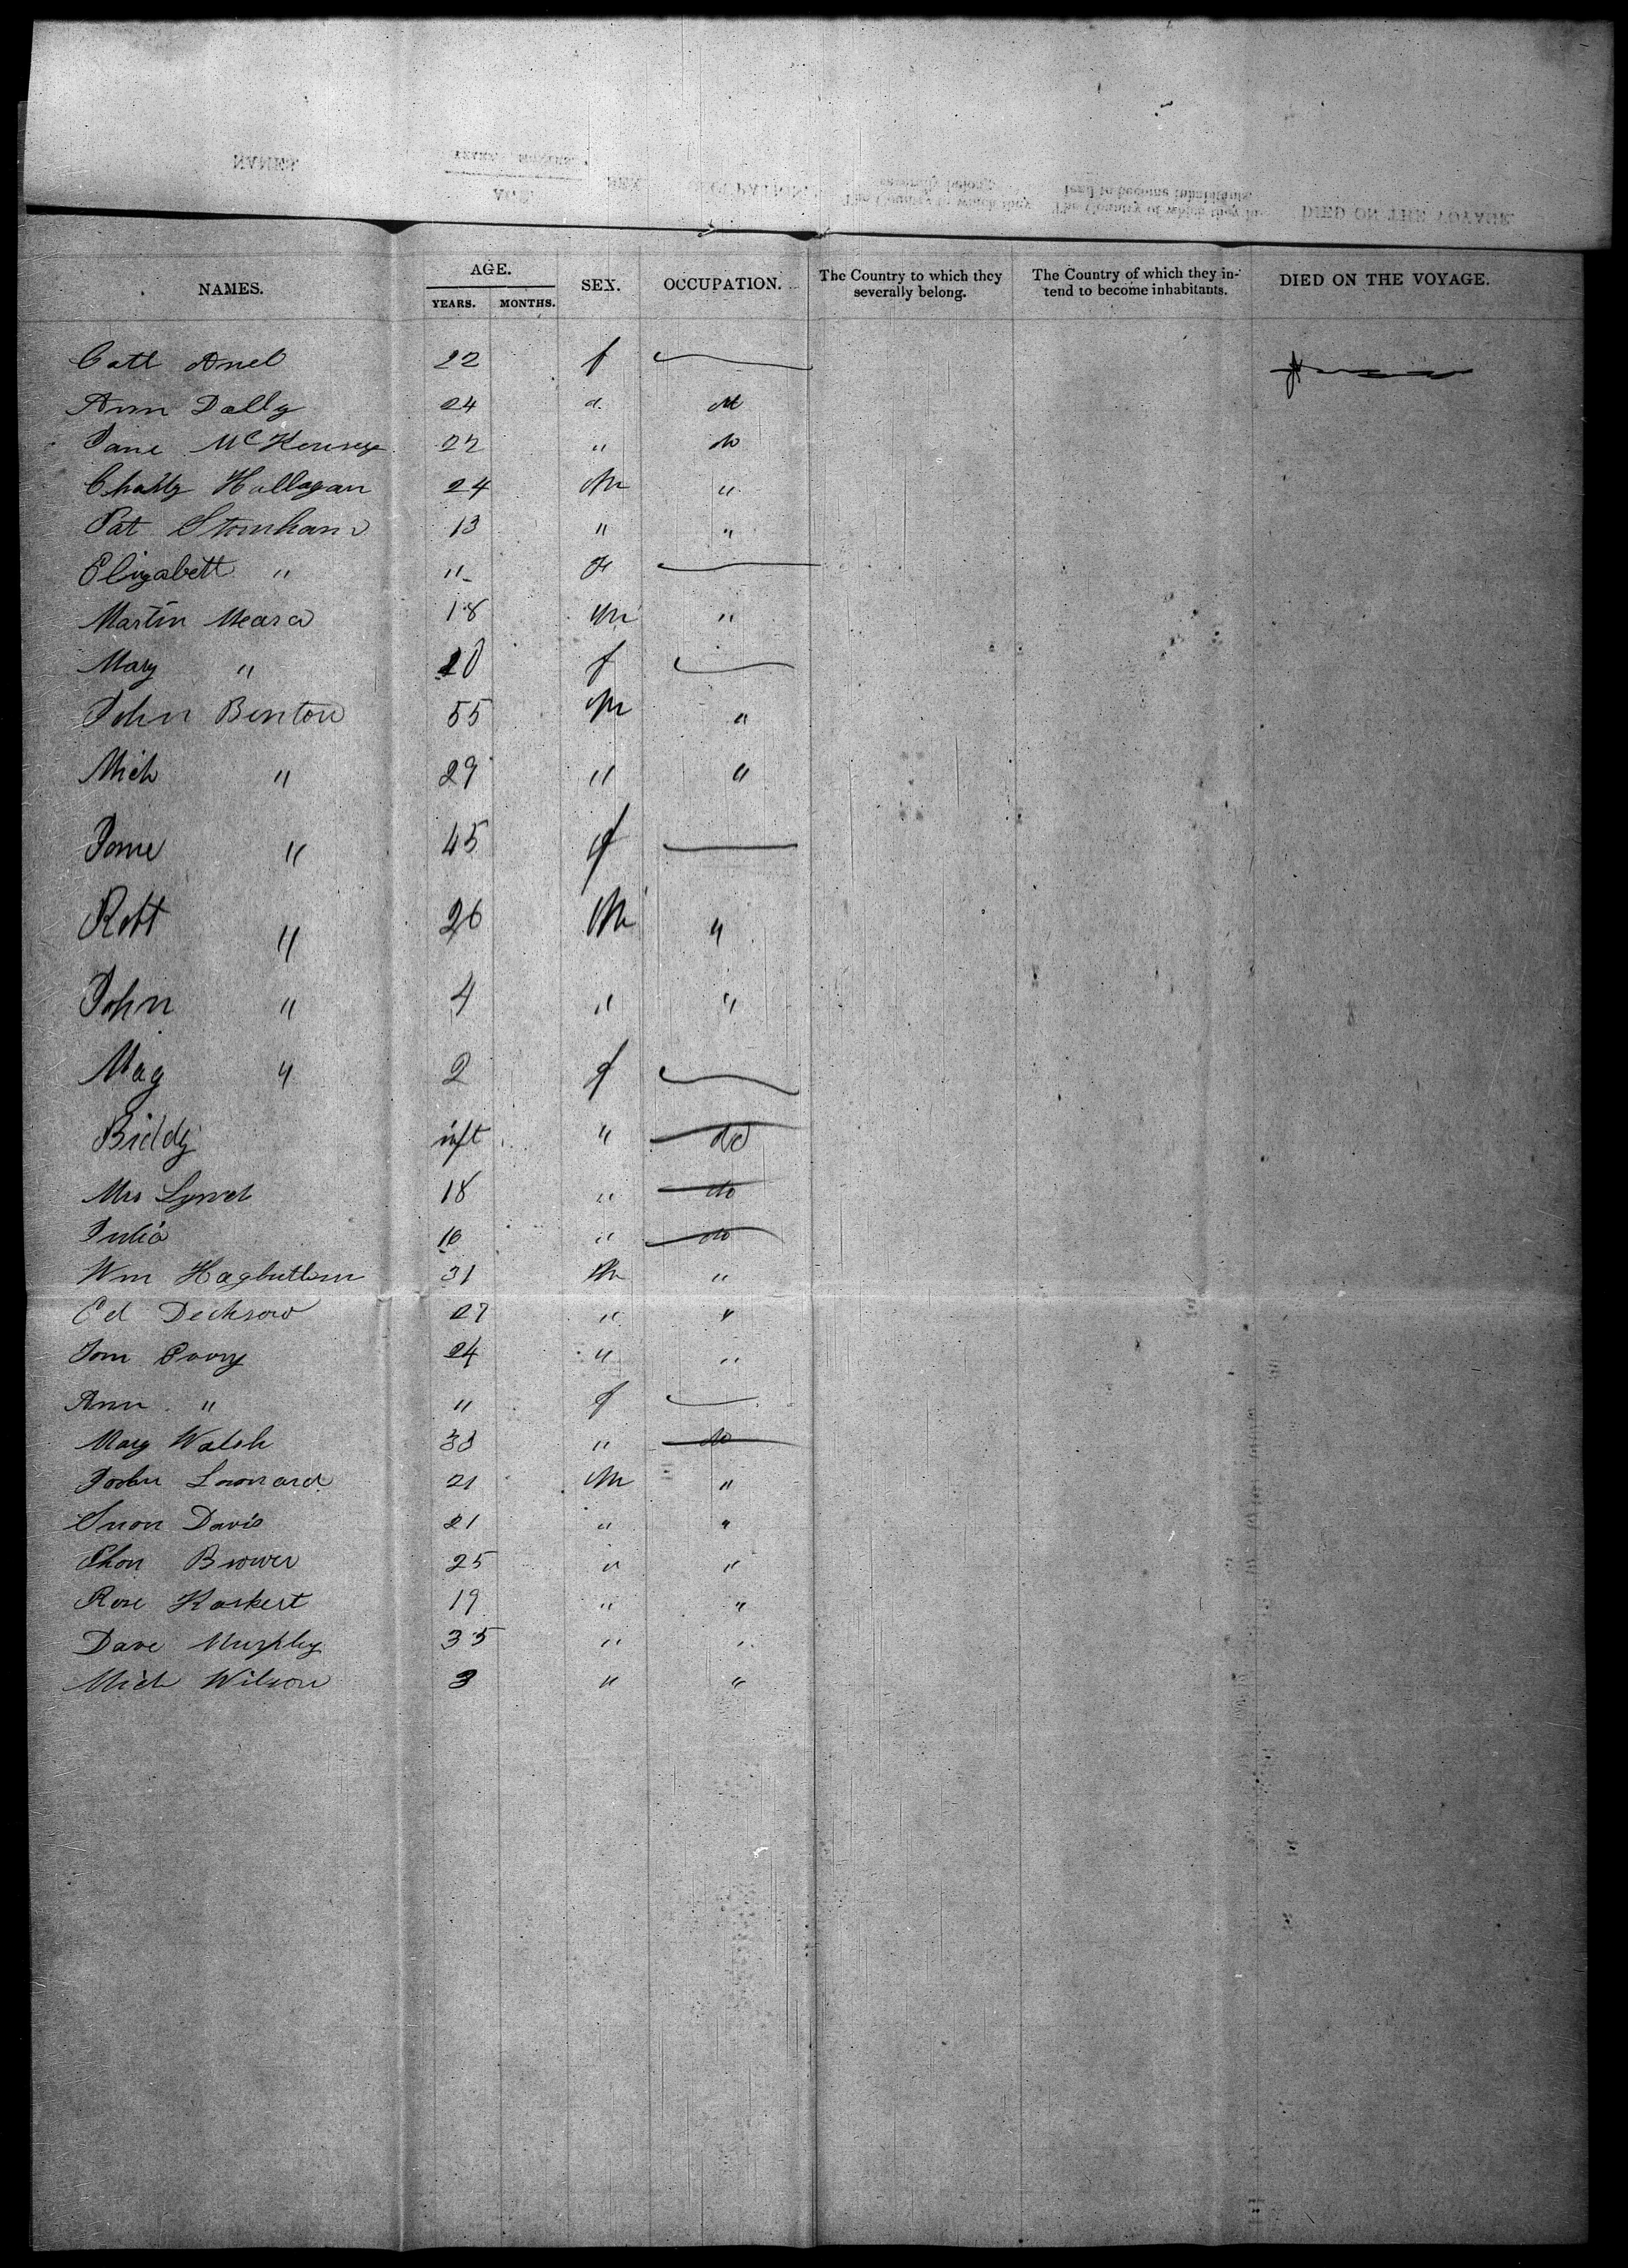 NAMES. AGE. YEARS. MONTHS. SEX. OCCUPATION. The Country to which they severally belong. The Country of which they in- tend to become inhabitants. DIED ON THE VOYAGE.
Cath 22 f
Ann Dally 24 d. do
Jane McKenney 22 " do
Charly Hallagan 24 M "
Pat Stonham 13 " "
Elizabeth " 11 F
Martin Meara 18 M "
Mary " 20 f
John Benton 55 M "
Mich " 29 " "
Jane " 45 f
Robt " 26 M "
John " 4 " "
Mag " 2 f
Biddy inft " do
Mrs Lynch 18 " do
Julia 16 " do
Wm 31 M "
Ed 27 " "
Tom 24 " "
Ann " " f
Mary Walsh 33 " do
John Leonard 21 M "
Davis 21 " "
Brower 25 " "
Rose 19 " "
Dave Murphy 35 " "
Mich Wilson 3 " "